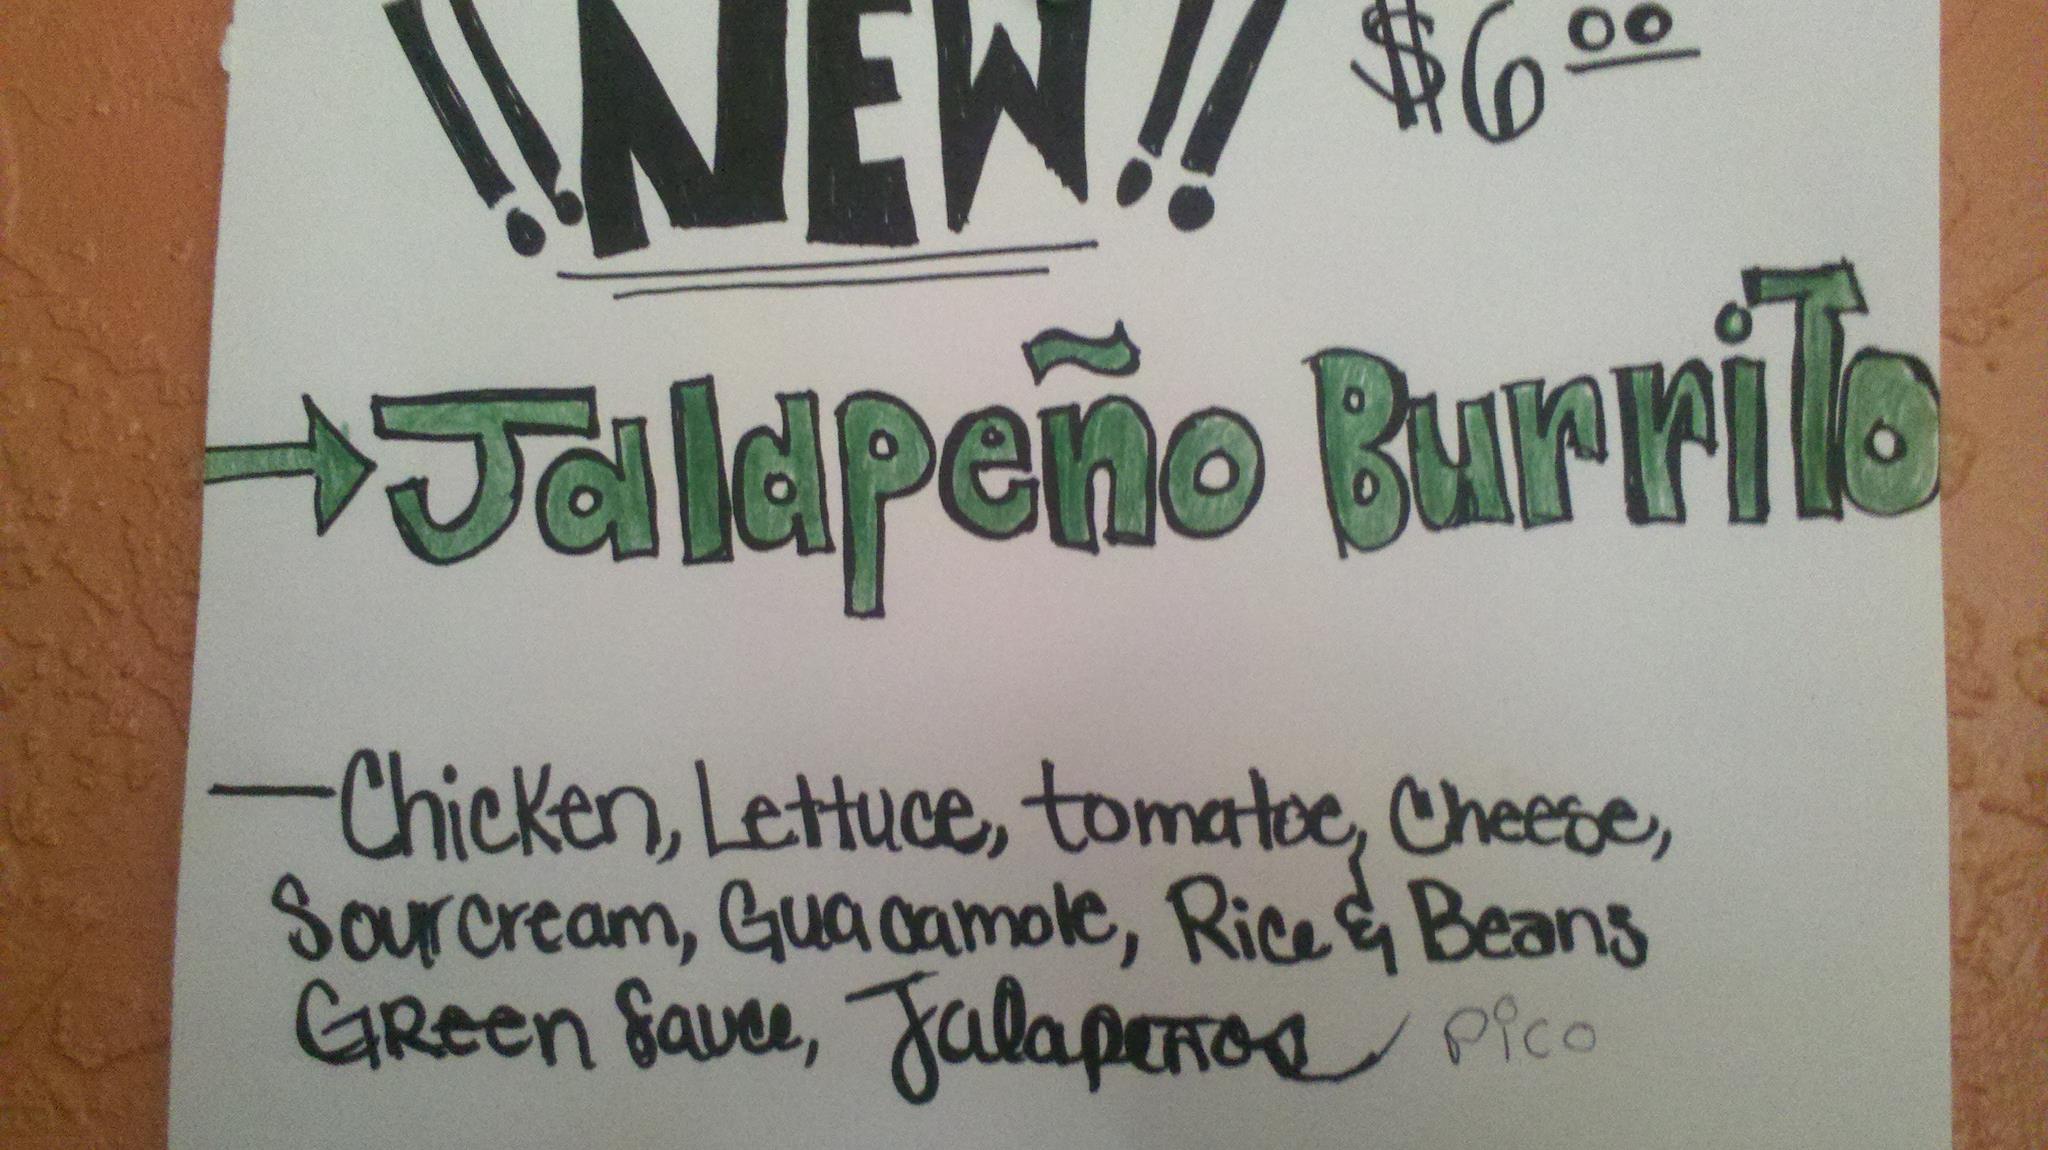 !!NEW!! $6.00
Jalapeño Burrito
—Chicken, Lettuce, tomatoe, Cheese,
Sour cream, Guacamole, Rice & Beans
Green Sauce, Jalapeños Pico